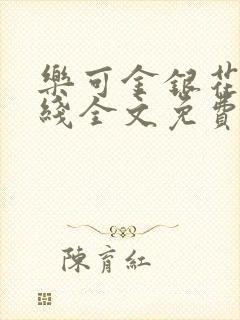 樂可金銀花
綫全文免費
陳育紅